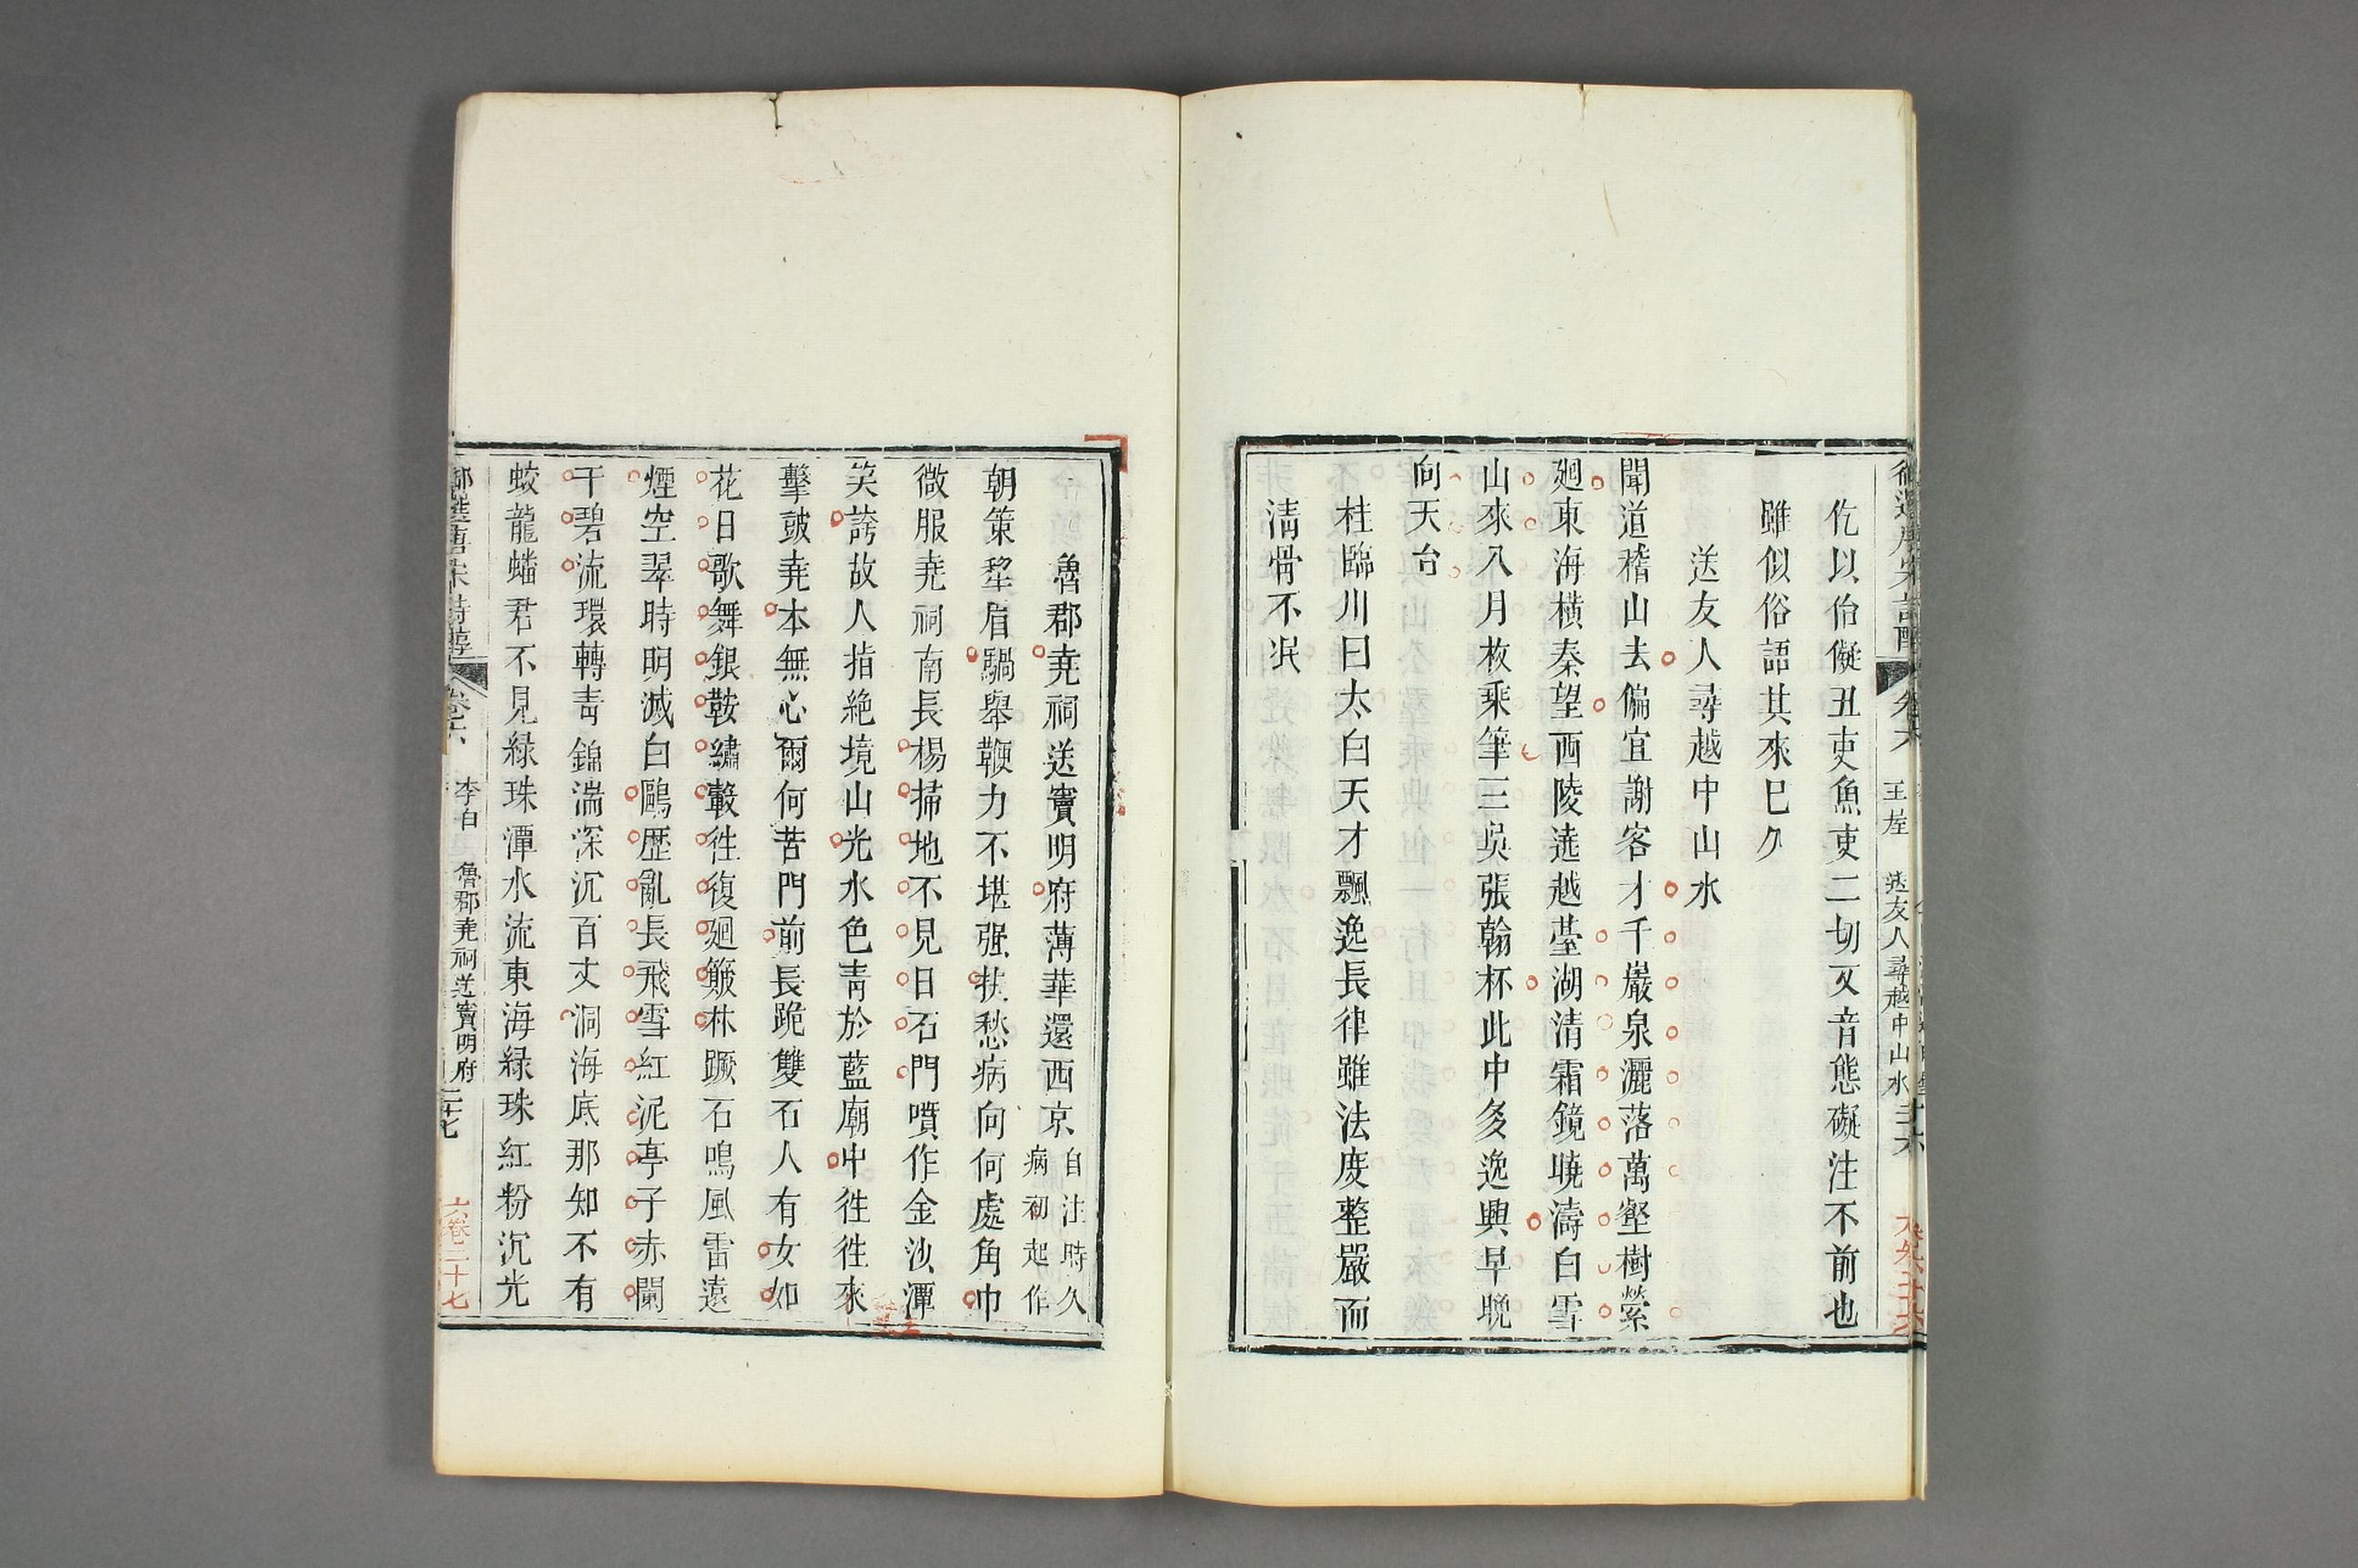 仡以佁儗丑吏魚吏二切又音態礙注不前也
雖似俗語其來已久
送友人尋越中山水
聞道稽山去偏宜謝客才千巖泉灑落萬壑樹縈
廻東海橫秦望西陵遶越臺湖清霜鏡曉濤白雪
山來八月枚乘筆三吳張翰杯此中多逸興早晚
向天台
桂臨川曰太白天才飄逸長律雖法度整嚴而
淸骨不泯
御選唐宋詩醇 卷六 送友人尋越中山水 三十六
魯郡堯祠送竇明府薄華還西京
自注時久
病初起作
朝策犂眉騧舉鞭力不堪强扶愁病向何處角巾
微服堯祠南長楊掃地不見日石門噴作金沙潭
笑誇故人指絶境山光水色靑於藍廟中徃徃來
擊鼓堯本無心爾何苦門前長跪雙石人有女如
花日歌舞銀鞍繡轂徃復廻簸林蹶石鳴風雷遠
煙空翠時明滅白鷗歷亂長飛雪紅泥亭子赤闌
干碧流環轉靑錦湍深沉百丈洞海底那知不有
蛟龍蟠君不見綠珠潭水流東海綠珠紅粉沉光
御選唐宋詩醇 卷六 李白 魯郡堯祠送竇明府 三十七
六卷三十七